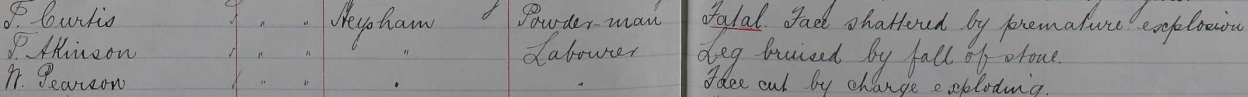 T. Curtis " " Heysham Powder-man Fatal. Face shattered by premature explosion
T. Atkinson " " " Labourer Leg bruised by fall of stone.
W. Pearson " " " " Face cut by charge exploding.